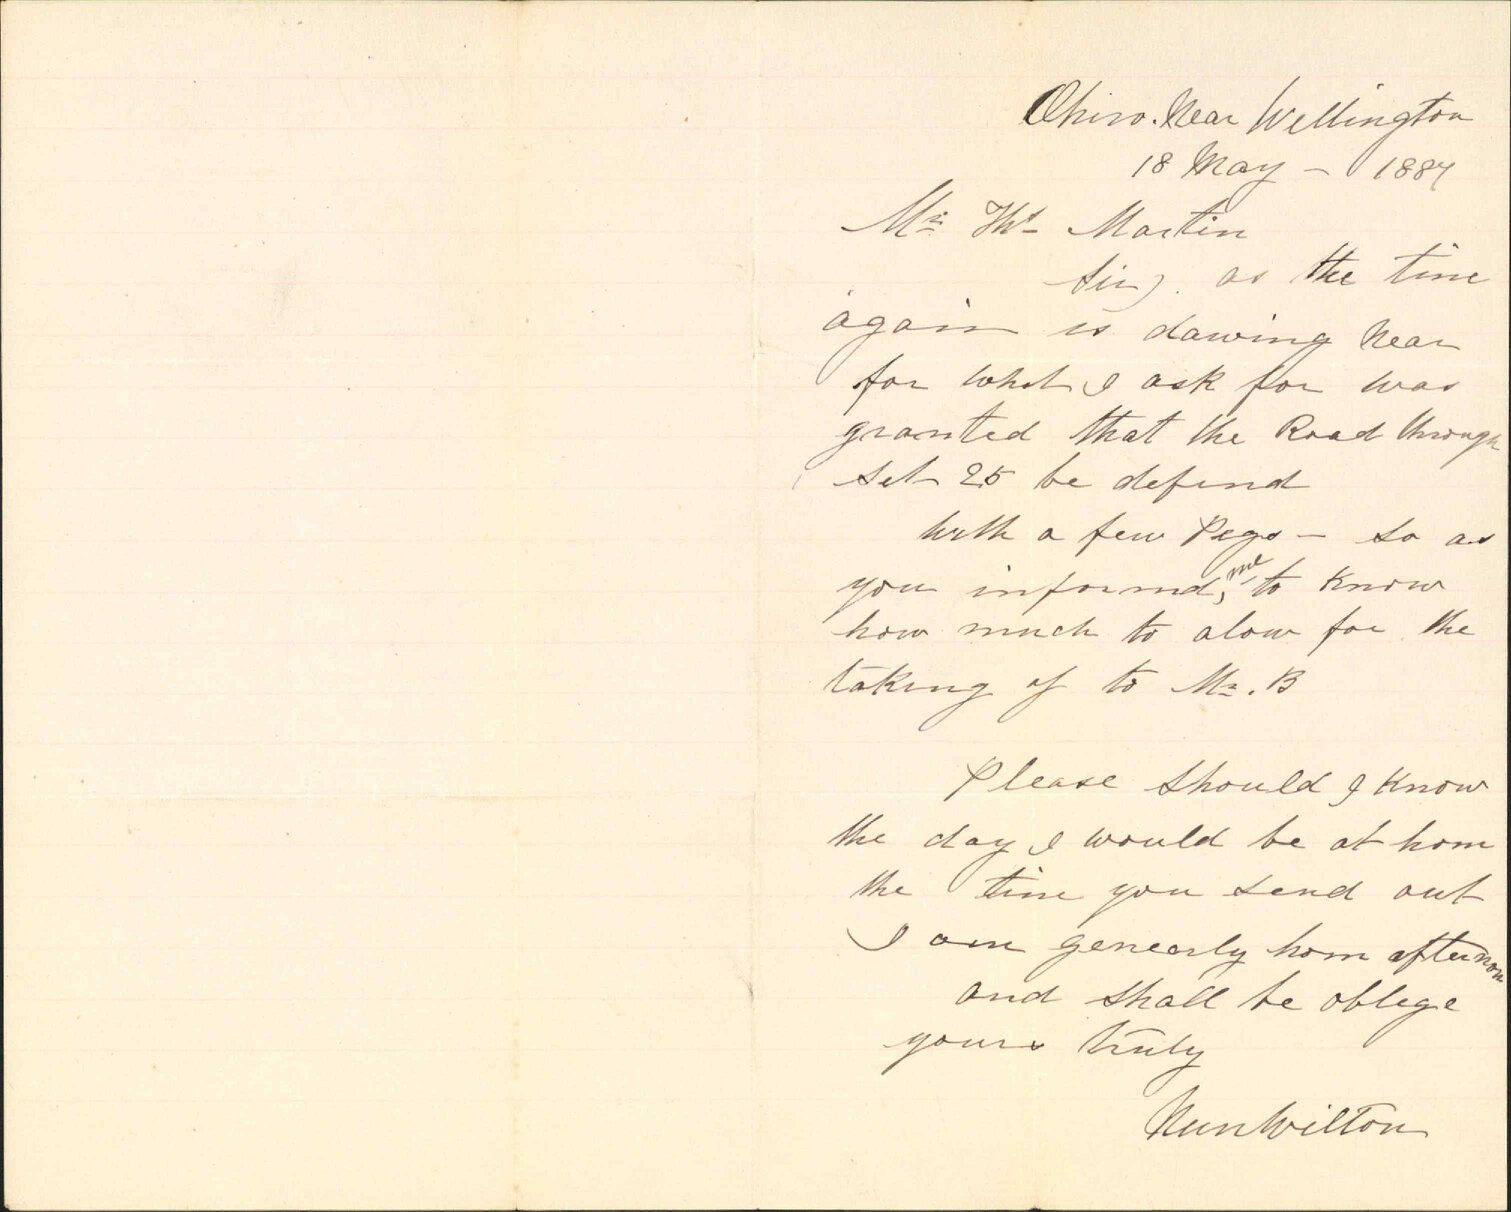 Ohiro. Near Wellington
18 May - 1887
Mr Ths Martin
Sir). as the time
again is dawing Near
for what I ask for was
granted that the Road through
set 25 be defind
with a few Pegs - so as
you informd, me to Know
how much to alow for the
taking of to Mr. B
Please should I Know
the day I would be at hom
the time you send out
I am genearly hom afternoon
and shall be oblege
yours truly